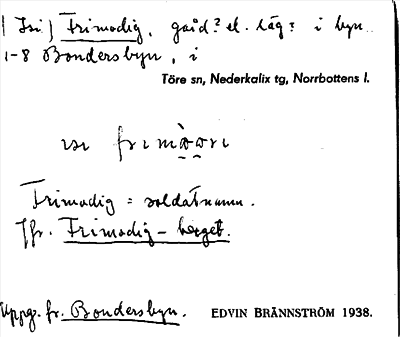 [Isi] Frimodig, gård? el. läg? i byn
1-8 Bondersbyn, i
Töre sn, Nederkalix tg, Norrbottens l.
Frimodig = soldatnamn.
Jfr. Frimodig-berget.
Uppg. fr. Bondersbyn. EDVIN BRÄNNSTRÖM 1938.